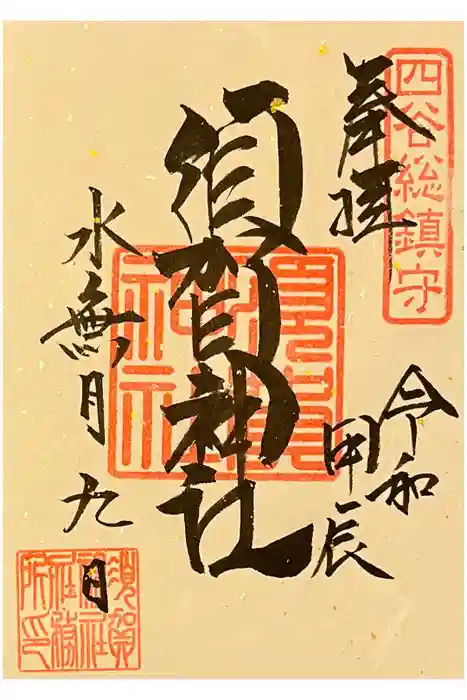 四谷総鎮守
奉拝
令和
甲辰
須賀神社
須賀神社
水無月九日
須賀
神社
社務
所印